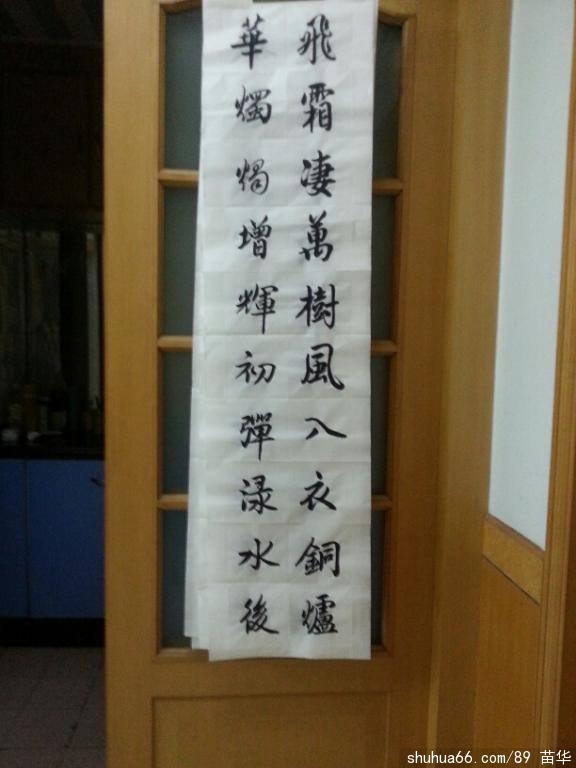 飛霜凄萬樹風入衣銅爐
華燭燭增輝初彈渌水後
shuhua66.com/89 苗华